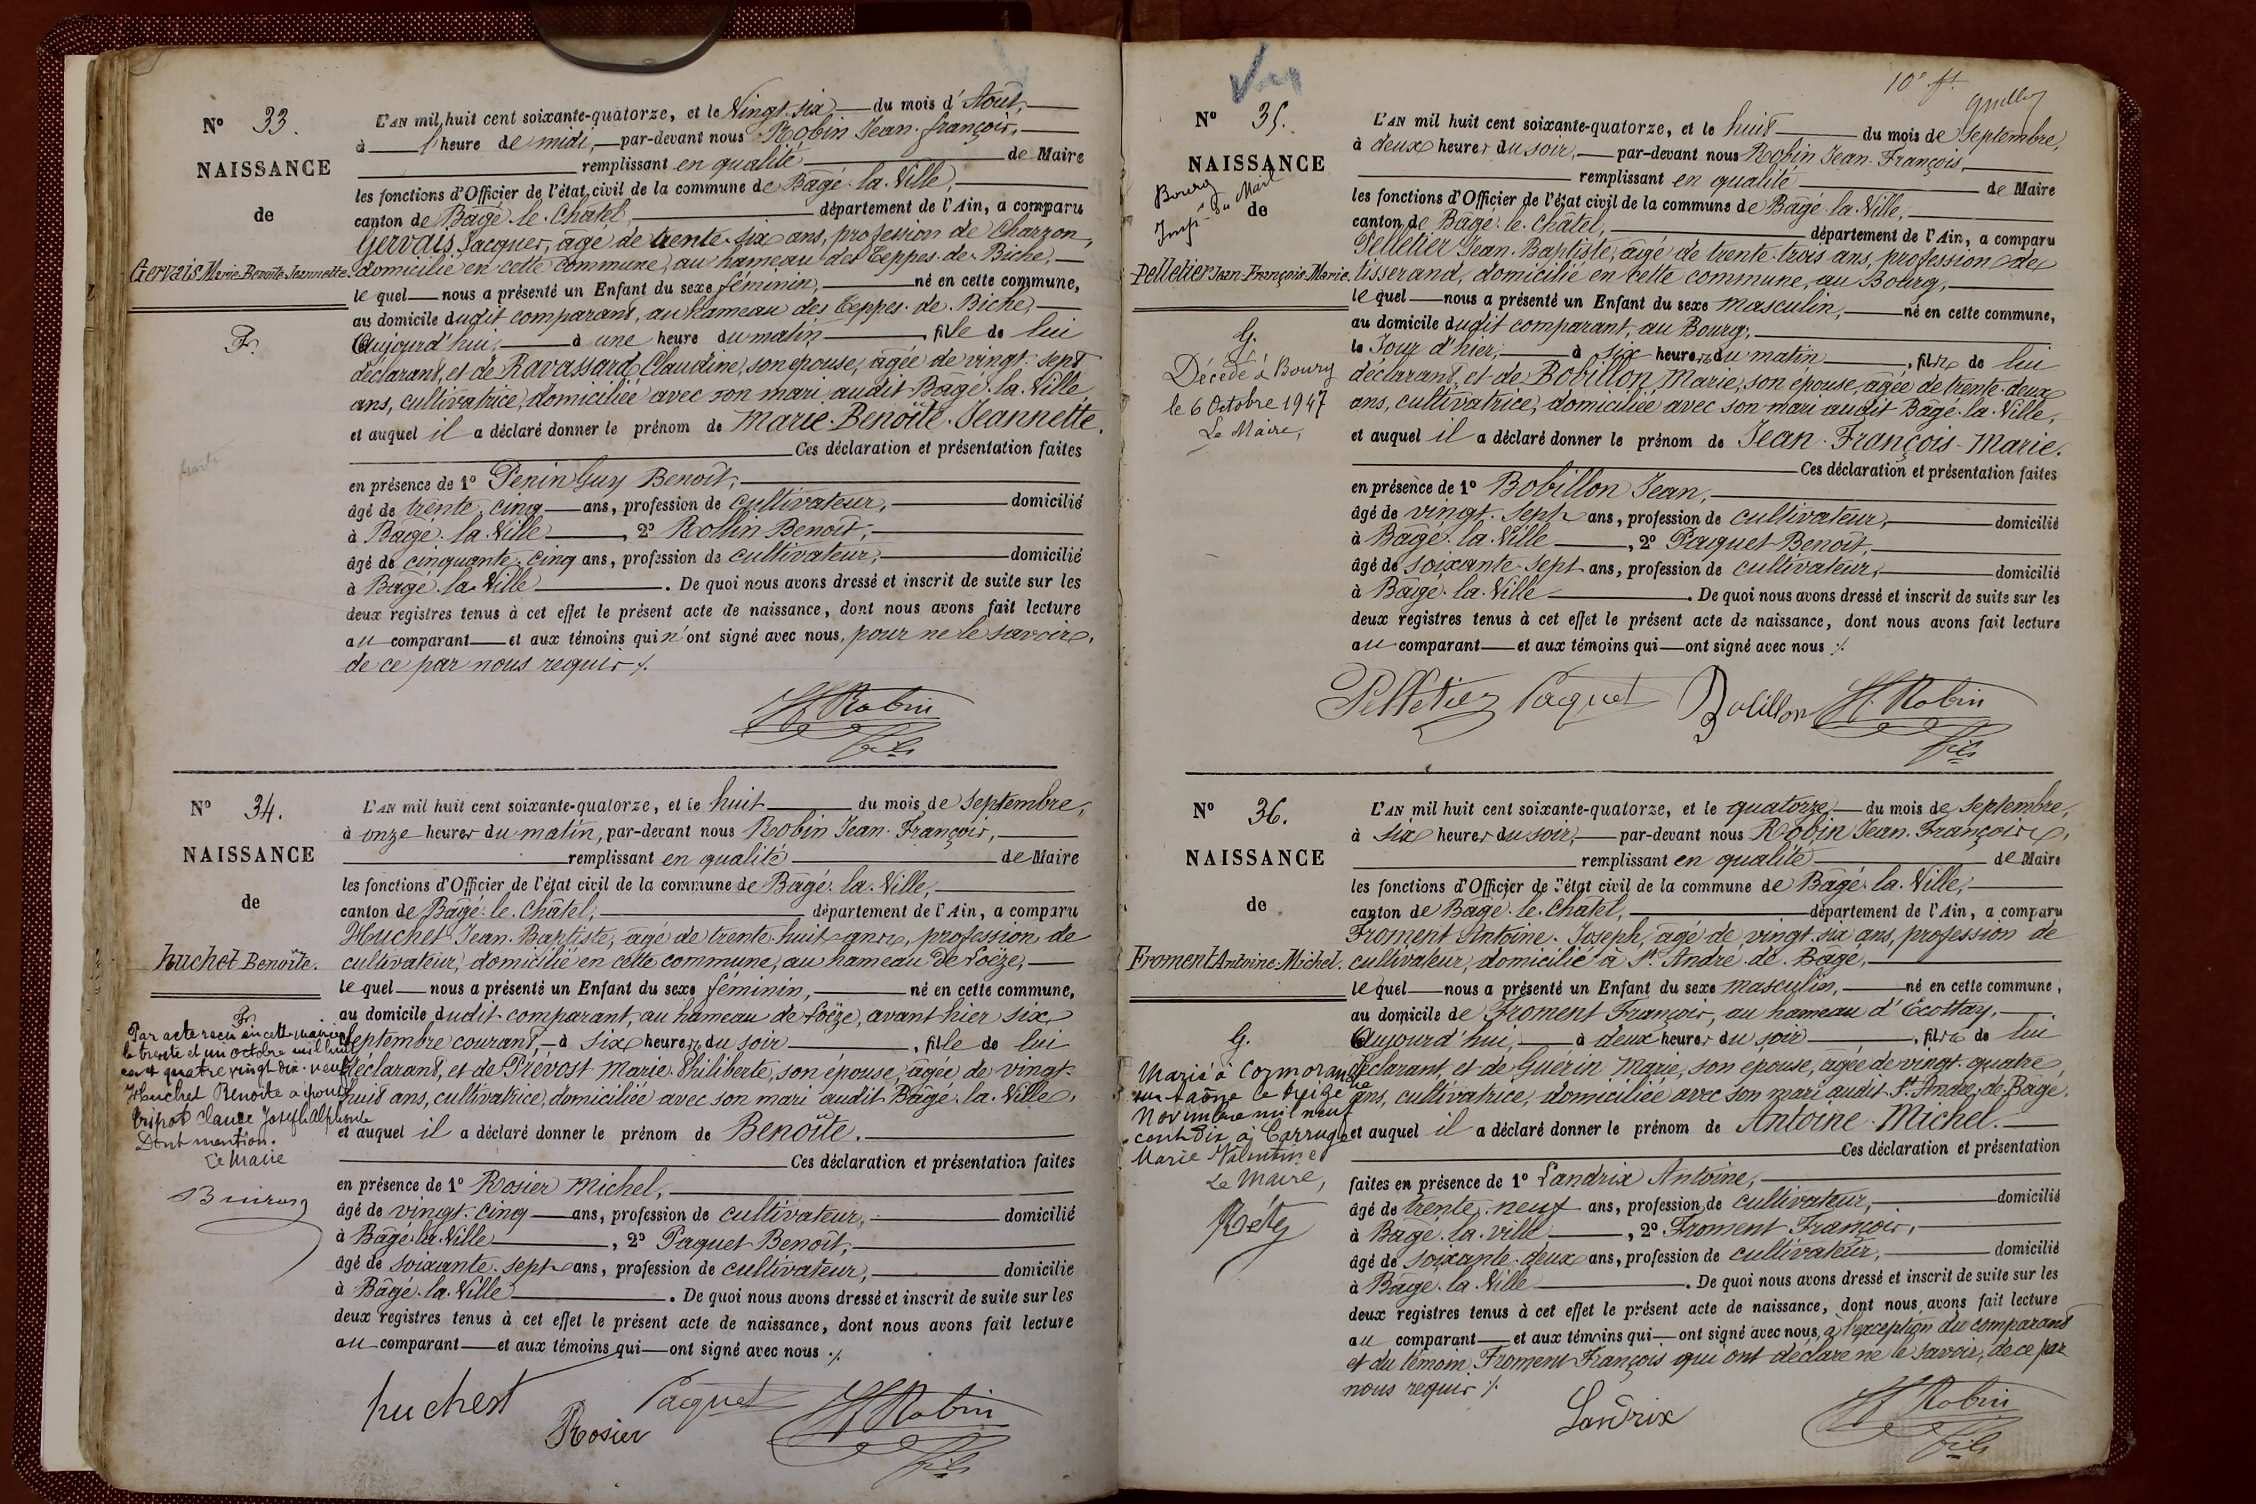 N° 33.
NAISSANCE
de
Gervais Marie-Benoîte-Jeannette.
F.
L'AN mil huit cent soixante-quatorze, et le Vingt-six du mois d'Aout,
à l'heure de midi, par-devant nous Robin Jean-françois,
remplissant en qualité de Maire
les fonctions d'Officier de l'état civil de la commune de Bâgé-la-Ville,
canton de Bâgé-le-Châtel, département de l'Ain, a comparu
Gervais Jacques, âgé de trente-six ans, profession de Charron,
domicilié en cette commune, au hameau des Teppes-de-Biche,
le quel nous a présenté un Enfant du sexe féminin, né en cette commune,
au domicile dudit comparant, au hameau des Teppes-de-Biche,
Aujourd'hui, à une heure du matin, fille de lui
déclarant, et de Ravassard Claudine, son épouse, âgée de vingt-sept
ans, cultivatrice, domiciliée avec son mari audit Bâgé-la-Ville
et auquel il a déclaré donner le prénom de Marie-Benoîte-Jeannette.
Ces déclaration et présentation faites
en présence de 1° Penin Guy Benoît,
âgé de trente-cinq ans, profession de cultivateur, domicilié
à Bâgé-la-Ville, 2° Rollin Benoît,
âgé de cinquante-cinq ans, profession de cultivateur, domicilié
à Bâgé-la-Ville. De quoi nous avons dressé et inscrit de suite sur les
deux registres tenus à cet effet le présent acte de naissance, dont nous avons fait lecture
au comparant et aux témoins qui n'ont signé avec nous, pour ne le savoir,
de ce par nous requis ./.
Robin
fils
N° 34.
NAISSANCE
de
huchet Benoîte.
F.
Par acte reçu en cette mairie
le trente et un octobre mil huit
cent quatre vingt dix-neuf
Huchet Benoite a épousé
Claude Joseph Alphonse
Dont mention.
Le Maire
L'AN mil huit cent soixante-quatorze, et le huit du mois de Septembre,
à onze heures du matin, par-devant nous Robin Jean-François,
remplissant en qualité de Maire
les fonctions d'Officier de l'état civil de la commune de Bâgé-la-Ville,
canton de Bâgé-le-Châtel, département de l'Ain, a comparu
Huchet Jean-Baptiste, âgé de trente-huit ans, profession de
cultivateur, domicilié en cette commune, au hameau de Loëze,
le quel nous a présenté un Enfant du sexe féminin, né en cette commune,
au domicile dudit comparant, au hameau de Loëze, avant-hier six
Septembre courant, à six heures du soir, fille de lui
déclarant, et de Prévost Marie-Philiberte, son épouse, âgée de vingt-
huit ans, cultivatrice, domiciliée avec son mari audit Bâgé-la-Ville,
et auquel il a déclaré donner le prénom de Benoîte.
Ces déclaration et présentation faites
en présence de 1° Rosier Michel,
âgé de vingt-cinq ans, profession de cultivateur, domicilié
à Bâgé-la-Ville, 2° Paquet Benoît,
âgé de soixante-sept ans, profession de cultivateur, domicilié
à Bâgé-la-Ville. De quoi nous avons dressé et inscrit de suite sur les
deux registres tenus à cet effet le présent acte de naissance, dont nous avons fait lecture
au comparant et aux témoins qui ont signé avec nous ./.
huchet
Paquet
Rosier
Robin
fils
10e ft.
N° 35.
NAISSANCE
de
Bourg
Imp. du Mail
Pelletier Jean-François-Marie.
G.
Décédé à Bourg
le 6 Octobre 1947
Le Maire,
L'AN mil huit cent soixante-quatorze, et le huit du mois de Septembre,
à deux heures du soir, par-devant nous Robin Jean-François,
remplissant en qualité de Maire
les fonctions d'Officier de l'état civil de la commune de Bâgé-la-Ville,
canton de Bâgé-le-Châtel, département de l'Ain, a comparu
Pelletier Jean-Baptiste, âgé de trente-trois ans, profession de
tisserand, domicilié en cette commune, au Bourg,
le quel nous a présenté un Enfant du sexe masculin, né en cette commune,
au domicile dudit comparant, au Bourg,
le Jour d'hier, à six heures du matin, fils de lui
déclarant, et de Bobillon Marie, son épouse, âgée de trente-deux
ans, cultivatrice, domiciliée avec son mari audit Bâgé-la-Ville,
et auquel il a déclaré donner le prénom de Jean-François-Marie.
Ces déclaration et présentation faites
en présence de 1° Bobillon Jean,
âgé de vingt-sept ans, profession de cultivateur, domicilié
à Bâgé-la-Ville, 2° Paquet Benoît,
âgé de soixante-sept ans, profession de cultivateur, domicilié
à Bâgé-la-Ville. De quoi nous avons dressé et inscrit de suite sur les
deux registres tenus à cet effet le présent acte de naissance, dont nous avons fait lecture
au comparant et aux témoins qui ont signé avec nous ./.
Pelletier Paquet Bobillon Robin
fils
N° 36.
NAISSANCE
de
Froment Antoine-Michel.
G.
Marié à Cormoranche
sur Saône le treize
Novembre mil neuf
cent dix à Carruge
Marie Valentine
Le Maire,
Réty
L'AN mil huit cent soixante-quatorze, et le quatorze du mois de Septembre,
à six heures du soir, par-devant nous Robin Jean-François,
remplissant en qualité de Maire
les fonctions d'Officier de l'état civil de la commune de Bâgé-la-Ville,
canton de Bâgé-le-Châtel, département de l'Ain, a comparu
Froment Antoine-Joseph, âgé de vingt-six ans, profession de
cultivateur, domicilié à St André-de-Bâgé,
le quel nous a présenté un Enfant du sexe masculin, né en cette commune,
au domicile de Froment François, au hameau d'Ecottay,
Aujourd'hui, à deux heures du soir, fils de lui
déclarant, et de Guérin Marie, son épouse, âgée de vingt-quatre
ans, cultivatrice, domiciliée avec son mari audit St André-de-Bâgé.
et auquel il a déclaré donner le prénom de Antoine-Michel.
Ces déclaration et présentation
faites en présence de 1° Landrix Antoine,
âgé de trente-neuf ans, profession de cultivateur, domicilié
à Bâgé-la-ville, 2° Froment François,
âgé de soixante-deux ans, profession de cultivateur, domicilié
à Bâgé-la-Ville. De quoi nous avons dressé et inscrit de suite sur les
deux registres tenus à cet effet le présent acte de naissance, dont nous avons fait lecture
au comparant et aux témoins qui ont signé avec nous, à l'exception du comparant
et du témoin Froment François qui ont déclaré ne le savoir, de ce par
nous requis ./.
Landrix
Robin
fils